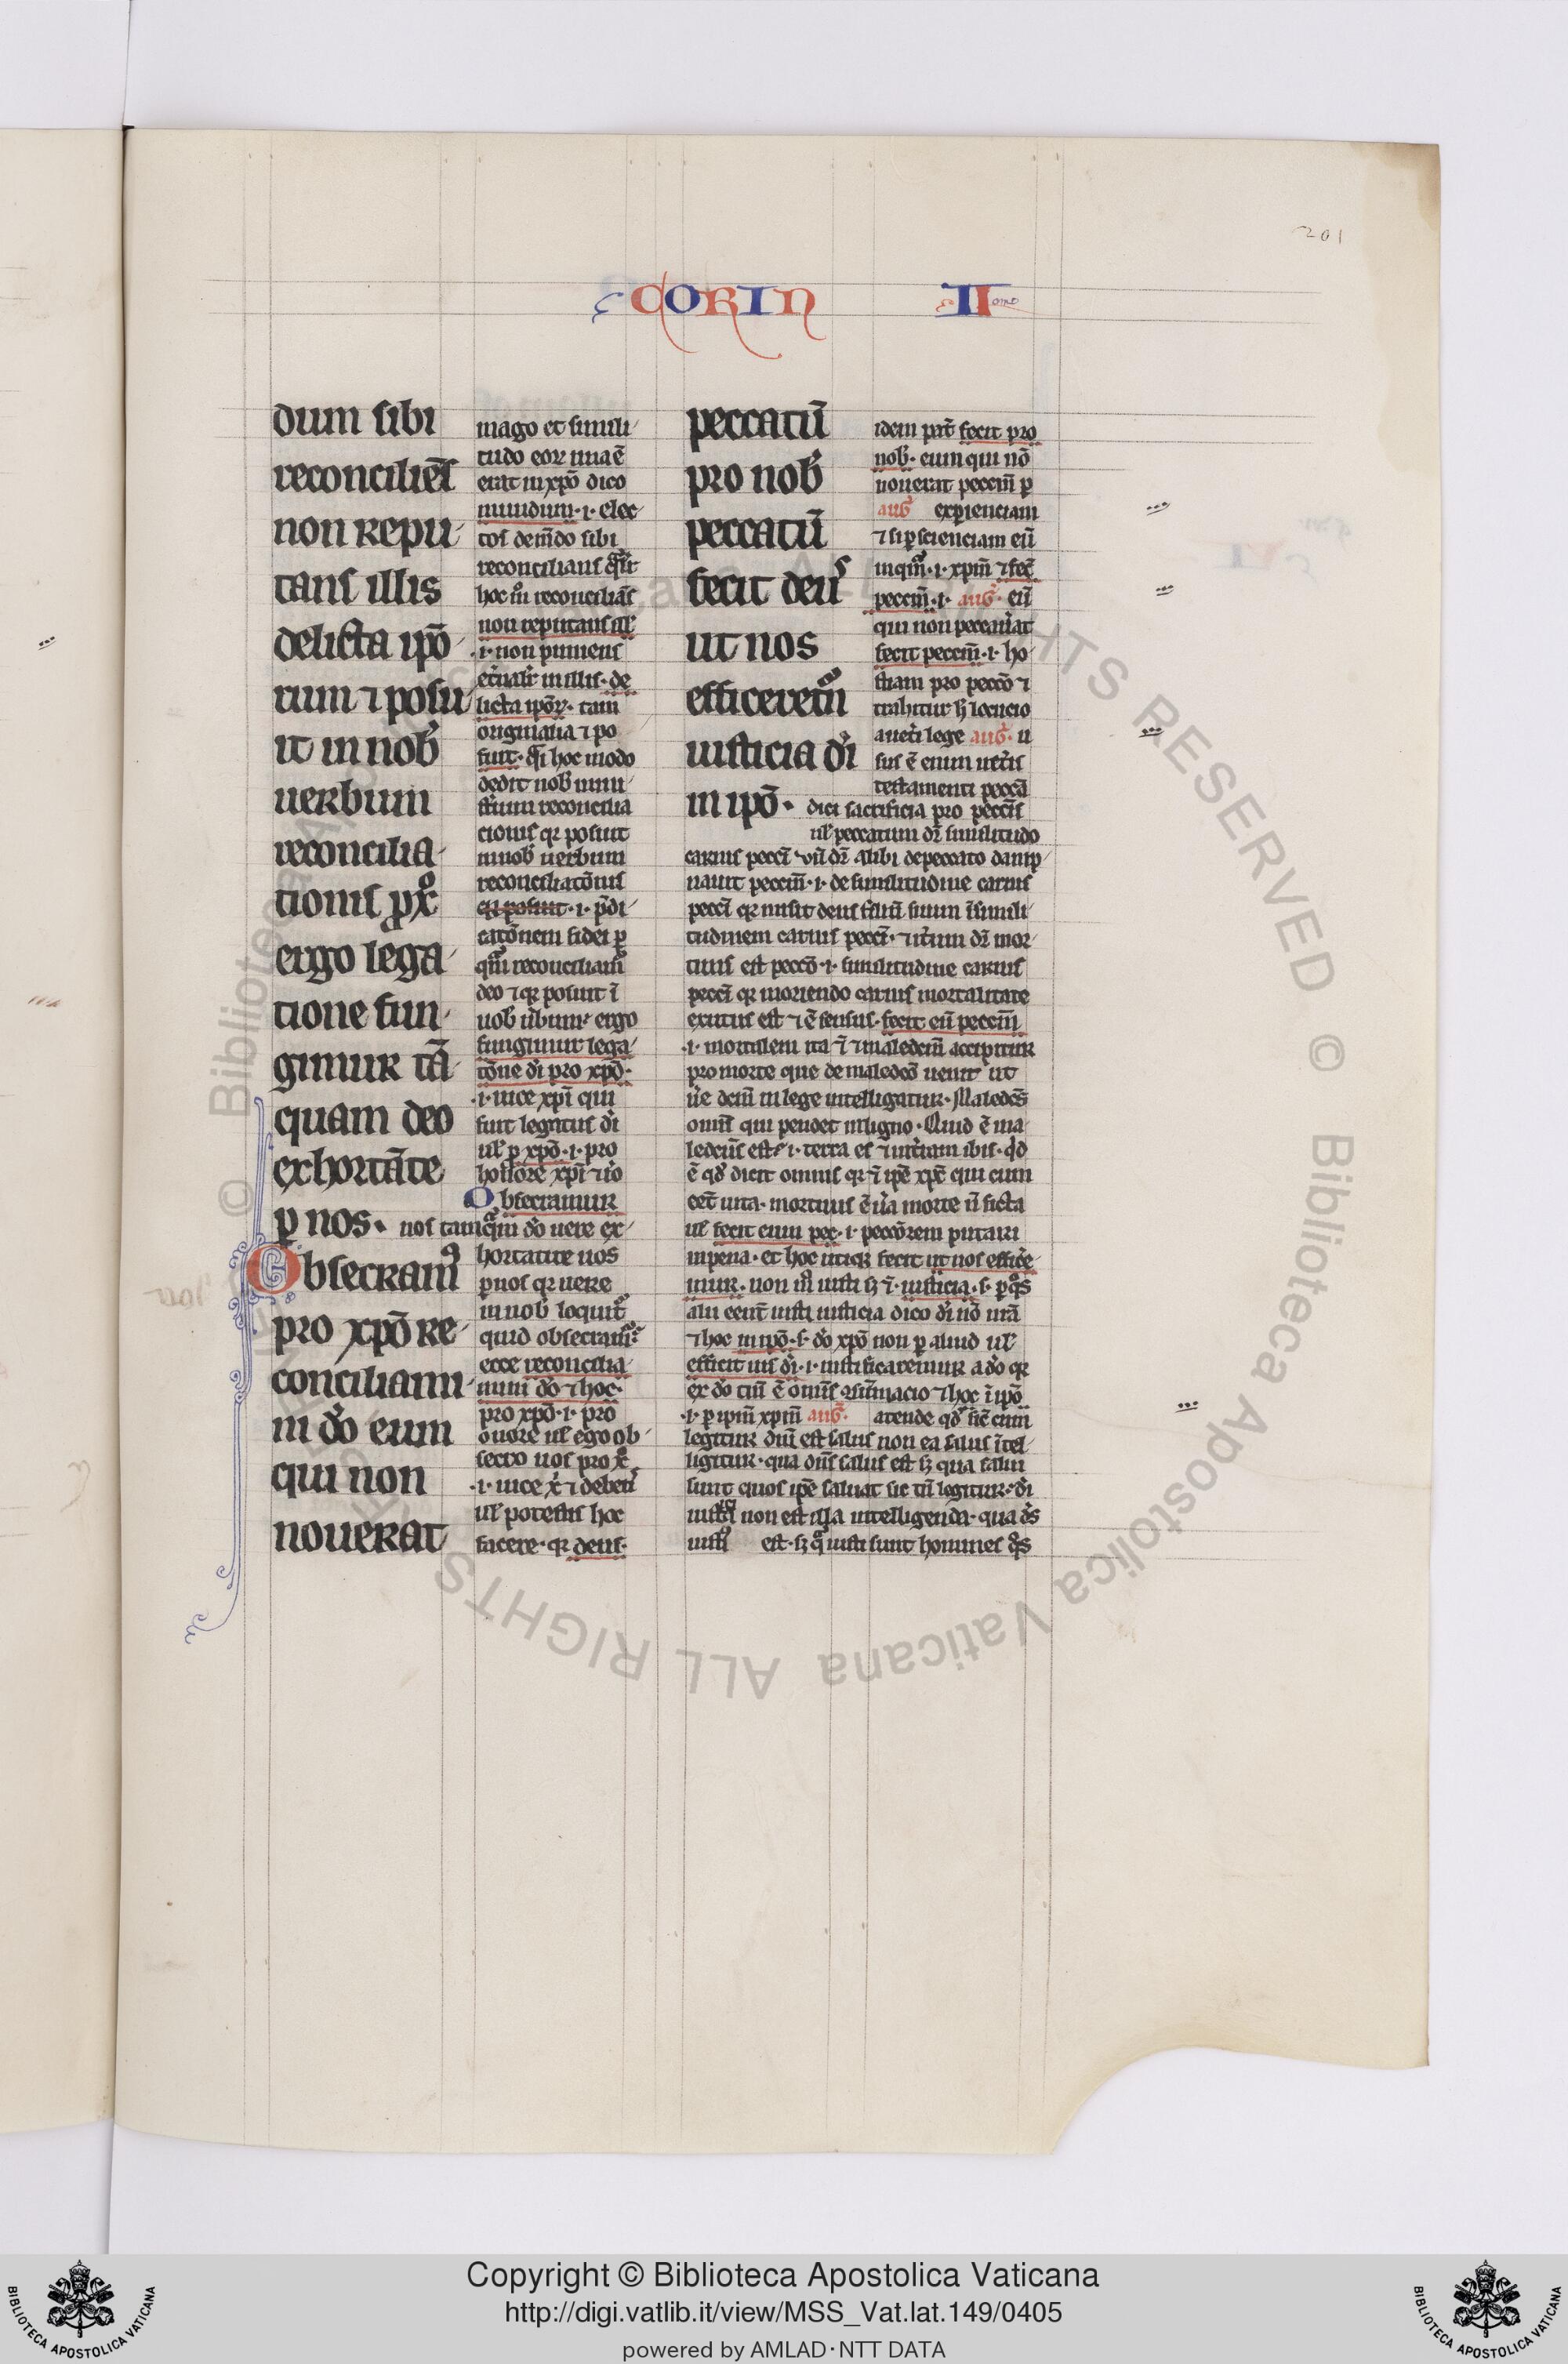 201
CORIN II
dum sibi
reconciliēs
non repu
tans illis
delicta ipō
rum ⁊ posu
it in nob̕
uerbum
reconcilia
tionis ꝓ xͦ
ergo lega
tione fun
gimur tā
quam deo
exhortāte
ꝑ nos.
Obsecramꝰ
pro xpō re
conciliami
ni dō eum
qui non
nouerat
mago et simili
tudo eoꝝ una ē
erat in xpō dico
mundum .i. elec
tos de mūdo sibi
hoc mō reconciliās
non reputans ill̕
.i. non puniens
licta ipōꝝ. tam
originalia ⁊ po
suit. q̄si hoc modo
dedit nob̕ mini
sterium reconcilia
cionis qꝛ posuit
in nob̕ uerbum
reconciliatōnis
.i. p̄di
catōnem fidei ꝑ
deo ⁊ qꝛ posuit ī
nob̕ ūbum ergo
fungimur lega
tōne dī pro xpō.
.i. uice xpī qui
fuit legatus dī
ul̕ ꝑ xpō .i. pro
honore xpī
Obsecramur
nos tamq̄m dō uere ex
hortante uos
ꝑ nos qꝛ uere
in nob̕ loquit̕
quid obsecramꝰ
ecce reconcilia
mini dō ⁊ hoc.
pro xpō .i. pro
onore ul̕ ego ob
secro uos pro xͦ
.i. uice xͥ ⁊ debetis
ul̕ potestis hoc
facere. qꝛ deus.
peccatū
pro nob̕
peccatū
fecit deus
ut nos
efficeremur
iusticia dī
in ipō.
idem pat̄ fecit pro
nob̕. eum qui nō
nouerat peccm̄ ꝑ
aug̕ experienciam
⁊ si ꝑ scienciam eū
inqm̄ .i. xpm̄ fec̄
peccm̄ .i. aug̕. eū
qui non peccauerat
fecit peccm̄ .i. ho
stiam pro peccō ⁊
trahitur h̕ locucio
a ueteri lege aug̕. u
sus ē enim ueteris
testamenti peccā
dici sacrificia pro peccīs
ul̕ peccatum dr̄ similitudo
carnis peccī vn̄ dr̄ alibi de peccato damp
nauit peccm̄ .i. de similitudine carnis
peccī qꝛ misit deus filiū suum ī simili
tudinem carnis peccī. ⁊ iterum dr̄ mor
tuus est peccō .i. similitudine carnis
peccī qꝛ moriendo carnis mortalitate
exutus est ⁊ ē sensus. fecit eū peccm̄
.i. mortalem ita ⁊ maledcm̄ accipitur
pro morte que de maledcō uenit ut
in lege intelligatur. Maledcs̄
omīs qui pendet in ligno. Quid ē ma
ledcūs est .i. terra es ⁊ in terram ibis. qd̄
ē qd̄ dicit omnis qꝛ ⁊ ipē xpc̄ qui cum
eēt uita. mortuus ē ūa morte nō ficta
ul̕ fecit eum pec. .i. peccōrem putari
in pena. et hoc utiqꝫ fecit ut nos effice
mur. non mō iusti sꝫ ⁊. iusticia. .s. ꝑ qͦs
alii eent̄ iusti iusticia dico dī nō nrā
⁊ hoc in ipō. .s. dō xpō non ꝑ aliud ul̕
efficit ius dī. .i. iustificaremur a dō qꝛ
.i. ꝑ ipm̄ xpm̄ aug̕. atende qd̄ sic̄ cum
legitur dnī est salus non ea salus ītel
ligitur. qua dn̄s saluus est sꝫ qua salui
sunt quos ipē saluat sic cū legitur. dī
iustīa non est illa intelligenda. qua d̄s
iustꝰ est. sꝫ qͣ iusti sunt homines q̄s
Copyright © Biblioteca Apostolica Vaticana
http://digi.vatlib.it/view/MSS_Vat.lat.149/0405
powered by AMLAD·NTT DATA
BIBLIOTECA APOSTOLICA VATICANA
BIBLIOTECA APOSTOLICA VATICANA
© Biblioteca Apostolica Vaticana ALL RIGHTS RESERVED © Biblioteca Apostolica Vaticana ALL RIGHTS RESERVED